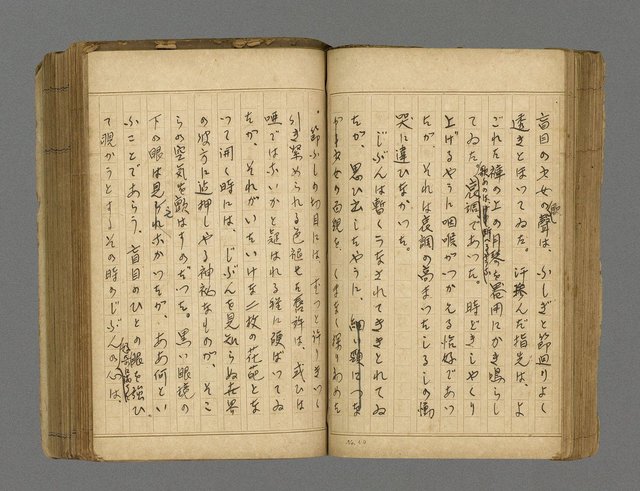 盲目の少女の聲は、ふしぎと節回りよく
透きとほつてゐた。汗滲んだ指先は、よ
ごれた褲の上の月琴を器用にかき鳴らし
てゐた。哀調であつた。時どきしやくり
上げるやうに咽喉がつかえる恰好であつ
たが、それは哀調の高まつたしるしの慟
哭に違ひなかつた。
じぶんは暫くうなだれてききとれてゐ
たが、思ひ出したやうに、細い頸につな
がる少女の面貌を、くまなく探りわめた
節ふしの切目には、ずつと許りきつく
引き緊められる色褪せた唇許は、或ひは
唖ではないかと疑はれる程に頑ばつてゐ
たが、それがいたいけな二枚の花葩とな
つて開く時には、じぶんを見知らぬ世界
の彼方に迄押しやる神秘なものが、そこ
らの空気を顫はすのだつた。黒い眼鏡の
下の眼は見えなかつたが、ああ何とい
ふことであらう、盲目のひとの眼を強ひ
て覗かうとするその時のじぶんの心は、